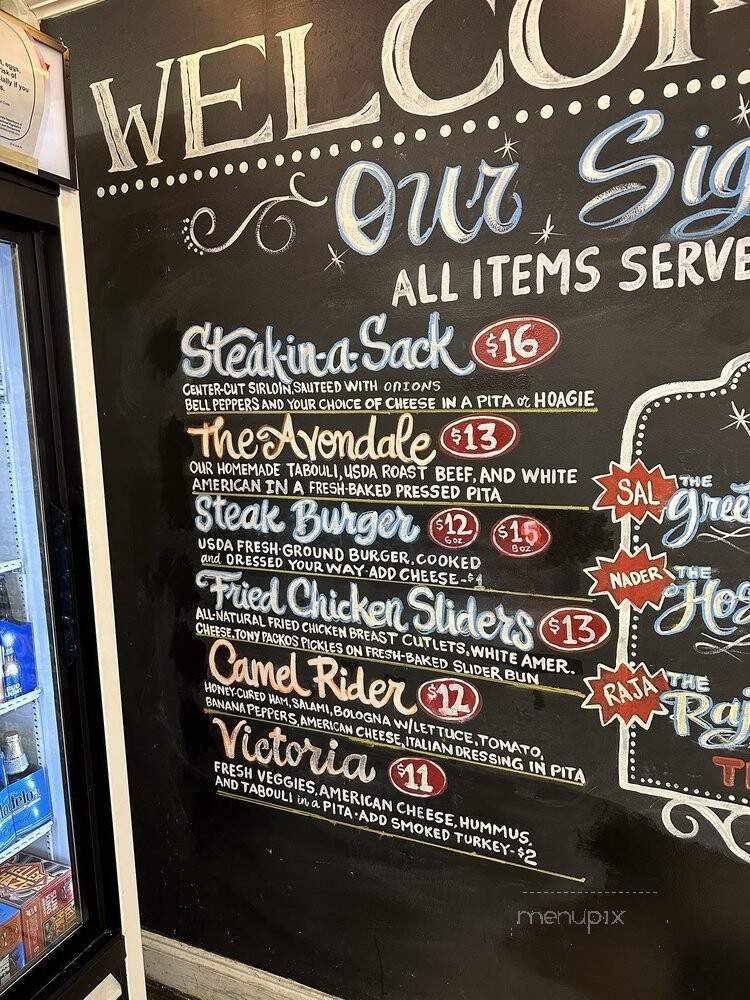 WELCO
Our Sig
ALL ITEMS SERVE
Steak-in-a-Sack $16
CENTER-CUT SIRLOIN, SAUTEED WITH ONIONS
BELL PEPPERS AND YOUR CHOICE OF CHEESE IN A PITA or HOAGIE
The Avondale $13
OUR HOMEMADE TABOULI, USDA ROAST BEEF, AND WHITE
AMERICAN IN A FRESH-BAKED PRESSED PITA
Steak Burger $12 6oz. $15 8oz
USDA FRESH-GROUND BURGER. COOKED
and DRESSED YOUR WAY-ADD CHEESE-$1
Fried Chicken Sliders $13
ALL-NATURAL FRIED CHICKEN BREAST CUTLETS, WHITE AMER.
CHEESE, TONY PACKOS PICKLES ON FRESH-BAKED SLIDER BUN
Camel Rider $12
HONEY-CURED HAM, SALAMI, BOLOGNA W/LETTUCE, TOMATO,
BANANA PEPPERS, AMERICAN CHEESE, ITALIAN DRESSING IN PITA
Victoria $11
FRESH VEGGIES, AMERICAN CHEESE, HUMMUS,
AND TABOULI in a PITA-ADD SMOKED TURKEY-$2
SAL THE
Gree
NADER THE
Hos
RAJA THE
Raj
menupix